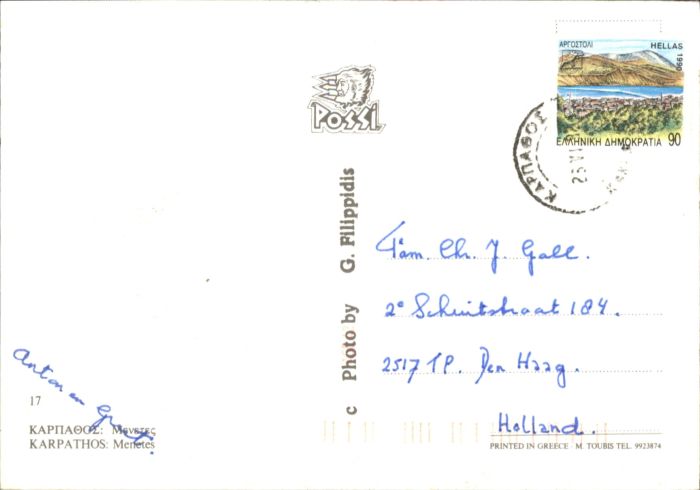 ΑΡΓΟΣΤΟΛΙ HELLAS
1990
ΕΛΛΗΝΙΚΗ ΔΗΜΟΚΡΑΤΙΑ 90
ΚΑΡΠΑΘΟΣ
POSSI
c Photo by G. Filippidis
Fam. Chr. J. Gall.
2e Schuitstraat 184.
2517 TP. Den Haag.
Holland.
Anton en
17
ΚΑΡΠΑΘΟΣ: Μενετες
KARPATHOS: Menetes
PRINTED IN GREECE - M. TOUBIS TEL. 9923874